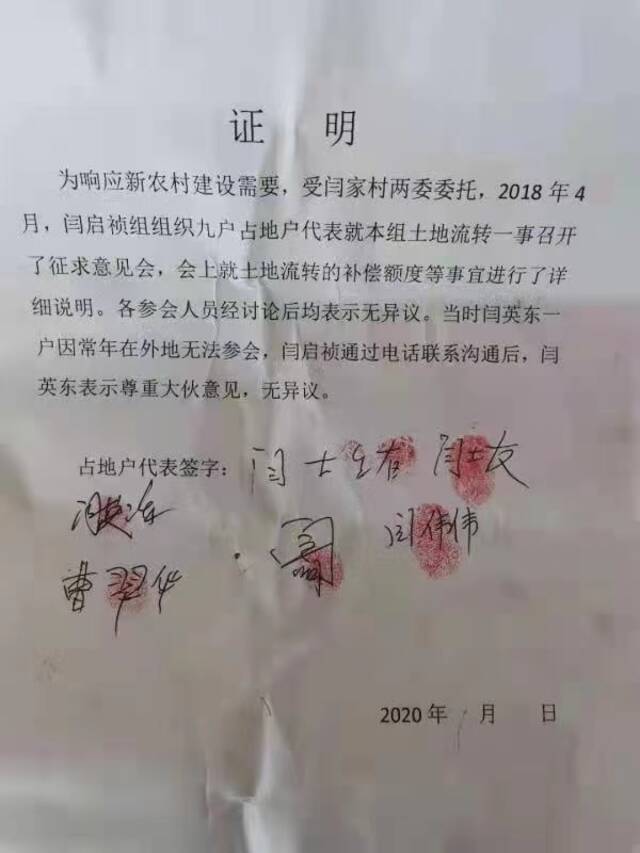 证 明
为响应新农村建设需要，受闫家村两委委托，2018 年 4
月，闫启祯组组织九户占地户代表就本组土地流转一事召开
了征求意见会，会上就土地流转的补偿额度等事宜进行了详
细说明。各参会人员经讨论后均表示无异议。当时闫英东一
户因常年在外地无法参会，闫启祯通过电话联系沟通后，闫
英东表示尊重大伙意见，无异议。
占地户代表签字： 闫士 闫士友
闫伟伟
曹翠华
2020 年 月 日